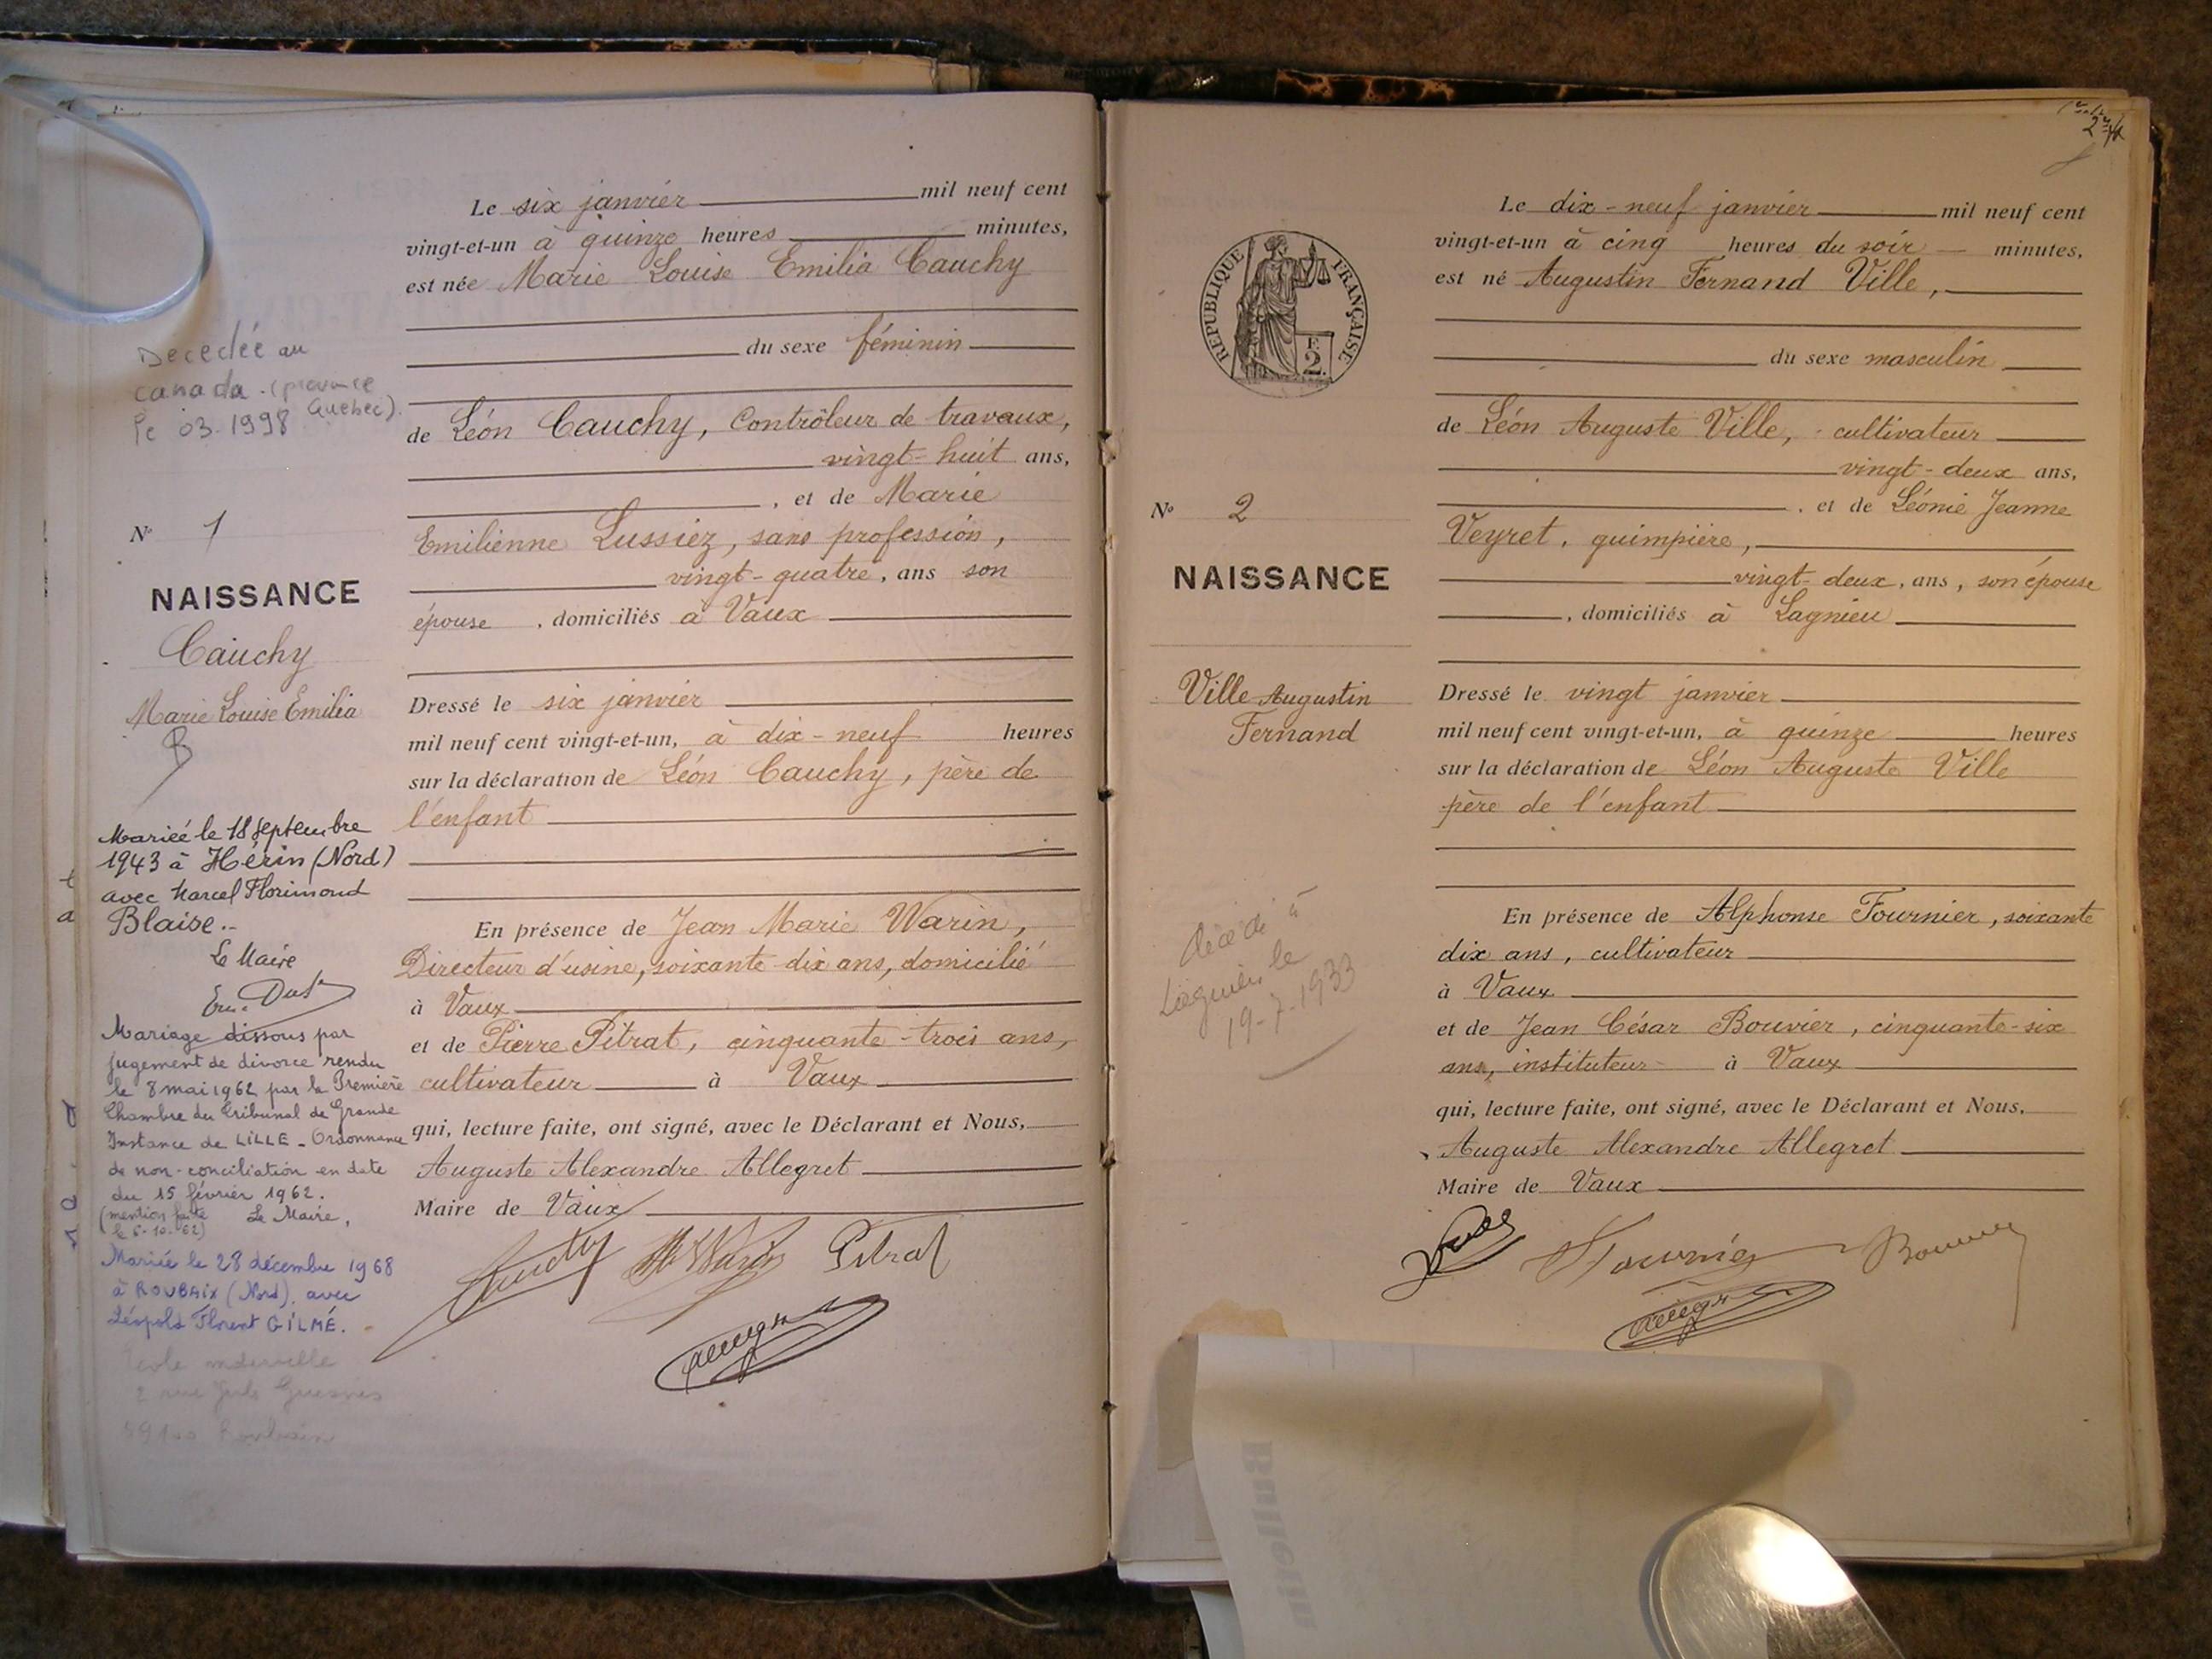 Le six janvier mil neuf cent
vingt-et-un à quinze heures minutes,
est née Marie Louise Emilia Cauchy
du sexe féminin
de Léon Cauchy, Contrôleur de travaux,
vingt-huit ans,
, et de Marie
Emilienne Lussiez, sans profession,
vingt-quatre, ans son
épouse, domiciliés à Vaux
Dressé le six janvier
mil neuf cent vingt-et-un, à dix-neuf heures
sur la déclaration de Léon Cauchy, père de
l'enfant
En présence de Jean Marie Warin,
Directeur d'usine, soixante-dix ans, domicilié
à Vaux
et de Pierre Pitrat, cinquante-trois ans,
cultivateur à Vaux
qui, lecture faite, ont signé, avec le Déclarant et Nous,
Auguste Alexandre Allegret
Maire de Vaux
Pitrat
Decedée au
Canada. (province
Quebec).
le 03.1998
No 1
NAISSANCE
Cauchy
Marie Louise Emilia
Mariée le 18 septembre
1943 à Hérin (Nord)
avec Marcel Florimond
Blaise.-
Le Maire
Mariage dissous par
jugement de divorce rendu
le 8 mai 1962 par la Première
Chambre du Tribunal de Grande
Instance de LILLE - Ordonnance
de non-conciliation en date
du 15 février 1962.
(mention faite Le Maire,
le 6-10-62)
Mariée le 28 décembre 1968
à ROUBAIX (Nord), avec
Léopold Florent GILMÉ.
Ecole maternelle
2 rue Jules Guesde
59100 Roubaix
RÉPUBLIQUE FRANÇAISE
F.
2.
No 2
NAISSANCE
Ville Augustin
Fernand
décédé à
Lagnieu le
19-7-1933
Le dix-neuf janvier mil neuf cent
vingt-et-un à cinq heures du soir minutes,
est né Augustin Fernand Ville,
du sexe masculin
de Léon Auguste Ville, cultivateur
vingt-deux ans,
, et de Léonie Jeanne
Veyret, guimpière,
vingt-deux, ans, son épouse
, domiciliés à Lagnieu
Dressé le vingt janvier
mil neuf cent vingt-et-un, à quinze heures
sur la déclaration de Léon Auguste Ville
père de l'enfant
En présence de Alphonse Fournier, soixante
dix ans, cultivateur
à Vaux
et de Jean César Bouvier, cinquante-six
ans, instituteur à Vaux
qui, lecture faite, ont signé, avec le Déclarant et Nous,
Auguste Alexandre Allegret
Maire de Vaux
Fournier
Bulletin